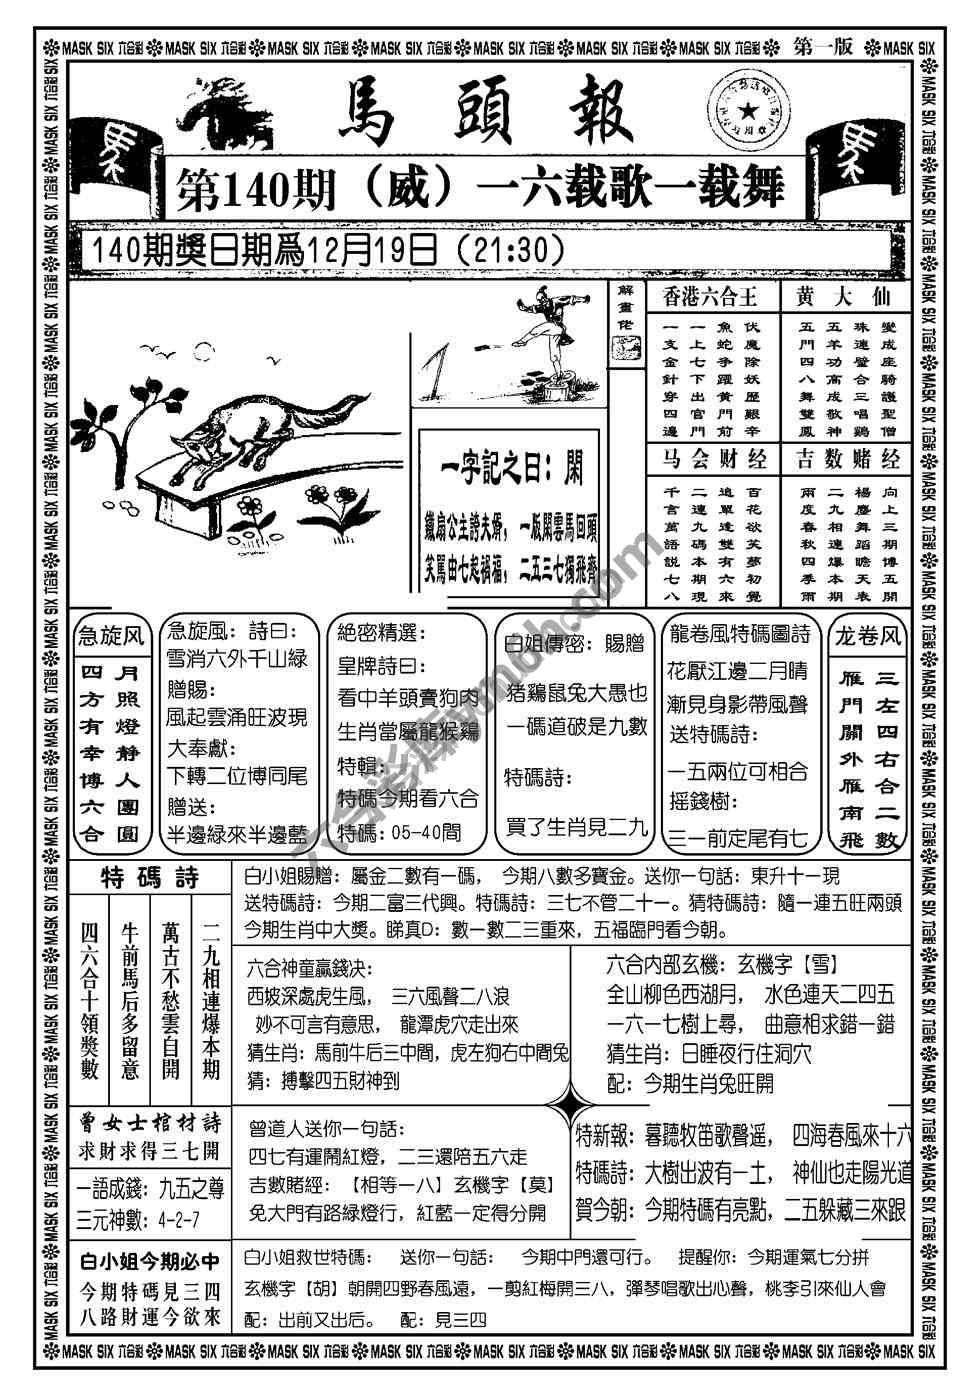 MASK SIX 六合彩 MASK SIX 六合彩 MASK SIX 六合彩 MASK SIX 六合彩 MASK SIX 六合彩 MASK SIX 六合彩 MASK SIX 六合彩 第一版 MASK SIX
馬頭報
第140期（威）一六载歌一载舞
140期獎日期爲12月19日（21:30）
解畫佬
一字記之曰：閑
鐵扇公主誇夫婿，一版閑雲馬回頭
笑駡由七起禍福，二五三七獨飛齊
香港六合王
伏魔除妖歷艱辛
魚蛇爭躍黄門前
一上七下出官門
一支金針穿四邊
黄大仙
變成座騎護聖僧
珠連璧合三唱鷄
五羊功高成歌神
五門四八舞雙鳳
马会财经
百花欲笑夢初覺
追單逢雙有六來
二連九碼本期現
千言萬語説七八
吉数赌经
向上三期博五開
楊塵舞蹈瞻天表
二九相連爆本期
兩度春秋四季雨
急旋风
月照燈静人團圓
四方有幸博六合
急旋风：詩曰：
雪消六外千山緑
贈賜：
風起雲涌旺波現
大奉獻：
下轉二位博同尾
贈送：
半邊緑來半邊藍
絶密精選：
皇牌詩曰：
看中羊頭賣狗肉
生肖當屬龍猴鷄
特輯：
特碼今期看六合
特碼：05-40間
白姐傳密：賜贈
猪鷄鼠兔大愚也
一碼道破是九數
特碼詩：
買了生肖見二九
龍卷風特碼圖詩
花厭江邊二月晴
漸見身影帶風聲
送特碼詩：
一五兩位可相合
摇錢樹：
三一前定尾有七
龙卷风
三左四右合二數
雁門關外雁南飛
特碼詩
二九相連爆本期
萬古不愁雲自開
牛前馬后多留意
四六合十領獎數
白小姐賜贈：屬金二數有一碼，今期八數多寶金。送你一句話：東升十一現
送特碼詩：今期二富三代興。特碼詩：三七不管二十一。猜特碼詩：隨一連五旺兩頭
今期生肖中大獎。睇真D：數一數二三重來，五福臨門看今朝。
六合神童贏錢决：
西坡深處虎生風，三六風聲二八浪
妙不可言有意思，龍潭虎穴走出來
猜生肖：馬前牛后三中間，虎左狗右中間兔
猜：搏擊四五財神到
六合内部玄機：玄機字【雪】
全山柳色西湖月，水色連天二四五
一六一七樹上尋，曲意相求錯一錯
猜生肖：日睡夜行住洞穴
配：今期生肖兔旺開
曾女士棺材詩
求財求得三七開
一語成錢：九五之尊
三元神數：4-2-7
曾道人送你一句話：
四七有運鬧紅燈，二三還陪五六走
吉數賭經：【相等一八】玄機字【莫】
兔大門有路緑燈行，紅藍一定得分開
特新報：暮聽牧笛歌聲遥，四海春風來十六
特碼詩：大樹出波有一土，神仙也走陽光道
賀今朝：今期特碼有亮點，二五躲藏三來跟
白小姐今期必中
今期特碼見三四
八路財運今欲來
白小姐救世特碼：送你一句話：今期中門還可行。提醒你：今期運氣七分拼
玄機字【胡】朝開四野春風遠，一剪紅梅開三八，彈琴唱歌出心聲，桃李引來仙人會
配：出前又出后。配：見三四
MASK SIX 六合彩 MASK SIX 六合彩 MASK SIX 六合彩 MASK SIX 六合彩 MASK SIX 六合彩 MASK SIX 六合彩 MASK SIX 六合彩 MASK SIX 六合彩 MASK SIX